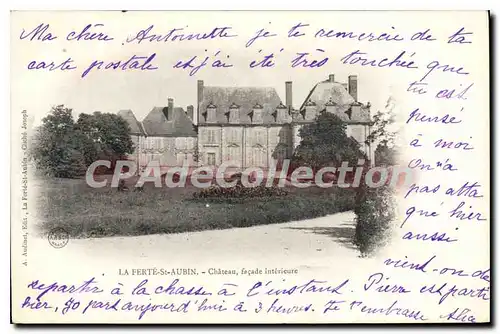 Ma chère Antoinette je te remercie de ta
carte postale et j'ai été très touchée que
tu est
pensé
à moi
On n'a
pas
qué hier
aussi
vient
repartir à la chasse à l'instant. Pierre est parti
hier, je pars aujourd'hui à 3 heures. Je t'embrasse
CPArama.com
LA FERTÉ-St-AUBIN. - Château, façade intérieure
A. Audinet, Edit., La Ferté-St-Aubin - Cliché Joseph